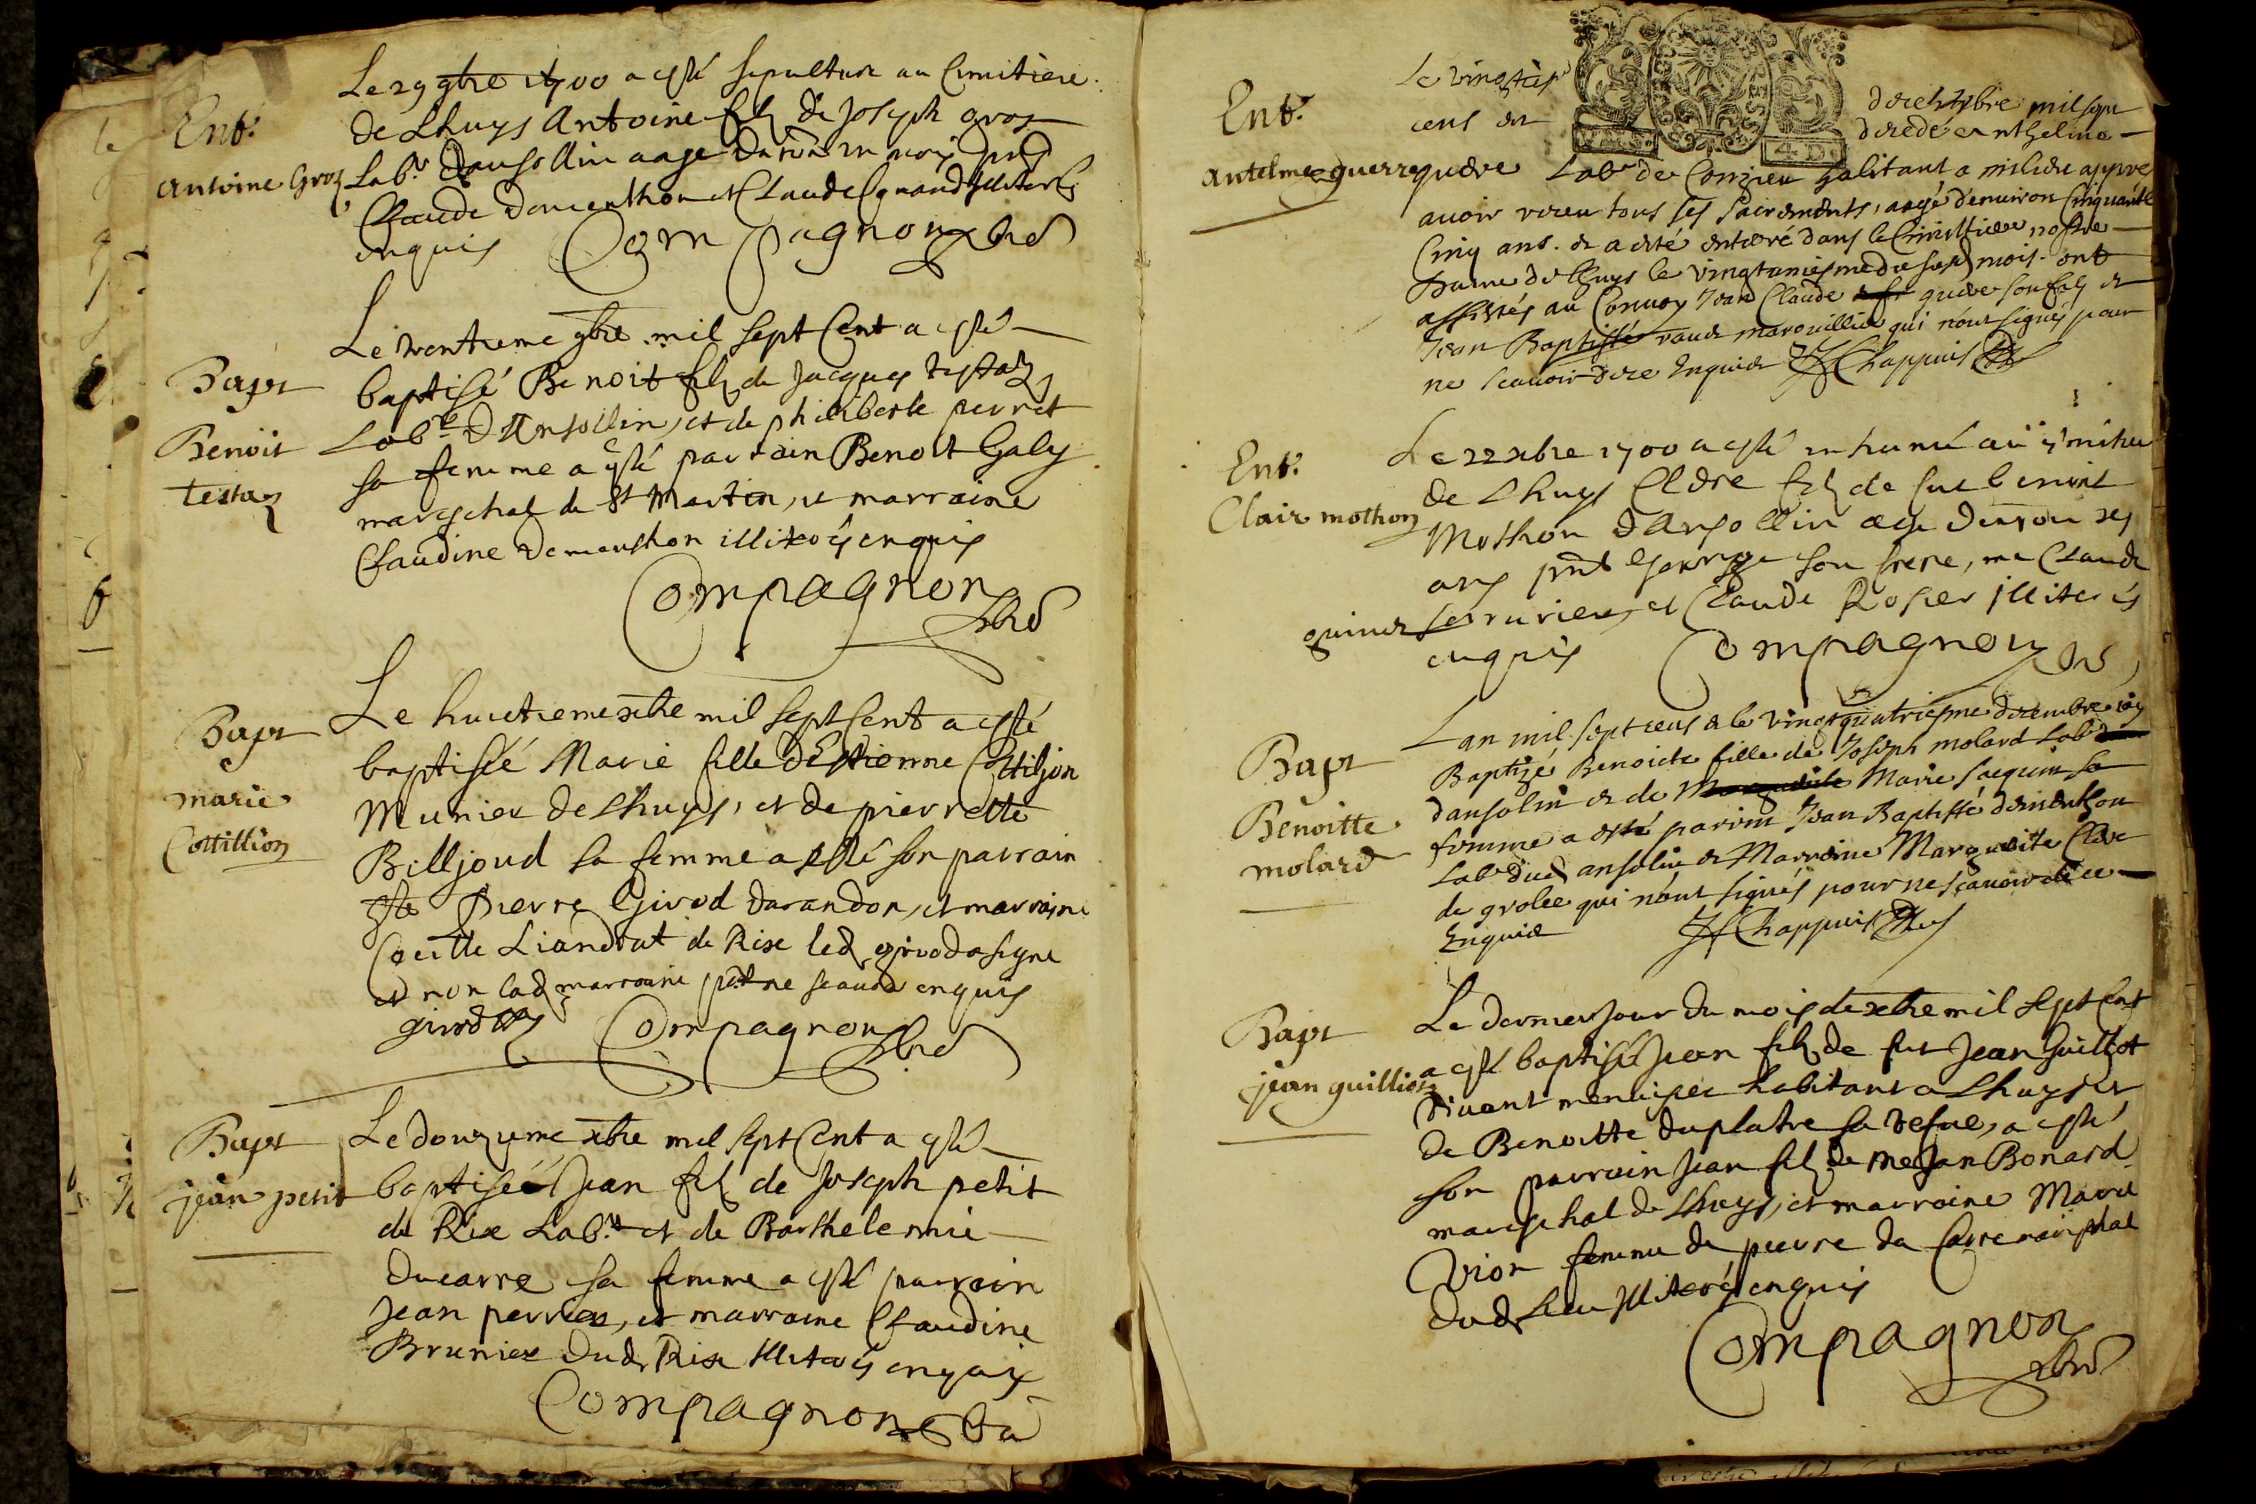 Ent.
antoine Groz
Le 29 9bre 1700 a esté sepulture au Cimitiere
de Lhuys Antoine filz de Joseph gros
Labr. Dansollin aage un mois
Claude Dementhon et Claude illiterés
enquis Compagnon
Bapt
Benoit
testaz
Le trentieme 9bre mil sept Cent a esté
baptisé Benoit filz de Jacques testaz
Labr. D'Ansollin, et de philiberte perret
sa femme a esté parrain Benoit Galy
mareschal de St Martin, et marraine
Claudine Dementhon illiterés enquis
Compagnon
Bapt
marie
Cottillion
Le huictieme xbre mil sept Cent a esté
baptisée Marie fille d'Estienne Cottiljon
Munier de Lhuys, et de pierrette
Billjoud sa femme a esté son parrain
Pierre Girod darandon, et marraine
Liandrat de Rix led girod a signé
et non lad marraine enquis
girod Compagnon
Bapt
jean petit
Le douzieme xbre mil sept Cent a esté
baptisé Jean filz de Joseph petit
de Rix Labr. et de Barthelemie
Ducarre sa femme a esté parrain
Jean perret, et marraine Claudine
Brunier dud Rix illiterés enquis
Compagnon
Ent.
antelme guerre
Le vingties decembre mil sept
cens est decedé anthelme
guere Labr de Conzieu habitant a milieu appres
avoir receu tous ses sacrements, aagé d'environ Cinquante
Cinq ans. et a esté enterré dans le Cimittiere nostre
Dame de Lhuys le vingtuniesme du susd mois. ont
assistés au Convoy Jean Claude guere son filz et
Jean Baptiste qui n'ont signés pour
ne scavoir de ce Enquis Chappuis
Ent.
Clair mothon
Le 22 xbre 1700 a esté inhumé au
de Lhuys Clere filz de fut benoit
Mothon d'Ansollin aage
ans son frere, me Claude
guinet serrurier et Claude Rosier illiterés
enquis Compagnon
Bapt
Benoitte
molard
Lan mil sept cens et le vingtquatriesme decembre
Baptizé Benoicte fille de Joseph molard Labr
dansolin et de Marie Jacquin sa
femme a esté parrin Jean Baptiste dementhon
Labr dud ansolin et Marreine Marguerite Clere
de grolee qui n'ont signés pour ne scavoir de ce
Enquis Chappuis
Bapt
jean guillion
Le dernier Jour du mois de xbre mil sept Cent
a esté baptisé Jean filz de fut Jean Guillot
vivant habitant a Lhuys et
de Benoitte duplatre sa vefve, a esté
son parrain Jean filz de me Jan Bonard
mareschal de Lhuys, et marraine Marie
Vion femme de pierre du Carre mareschal
dud Lieu illiterés enquis
Compagnon